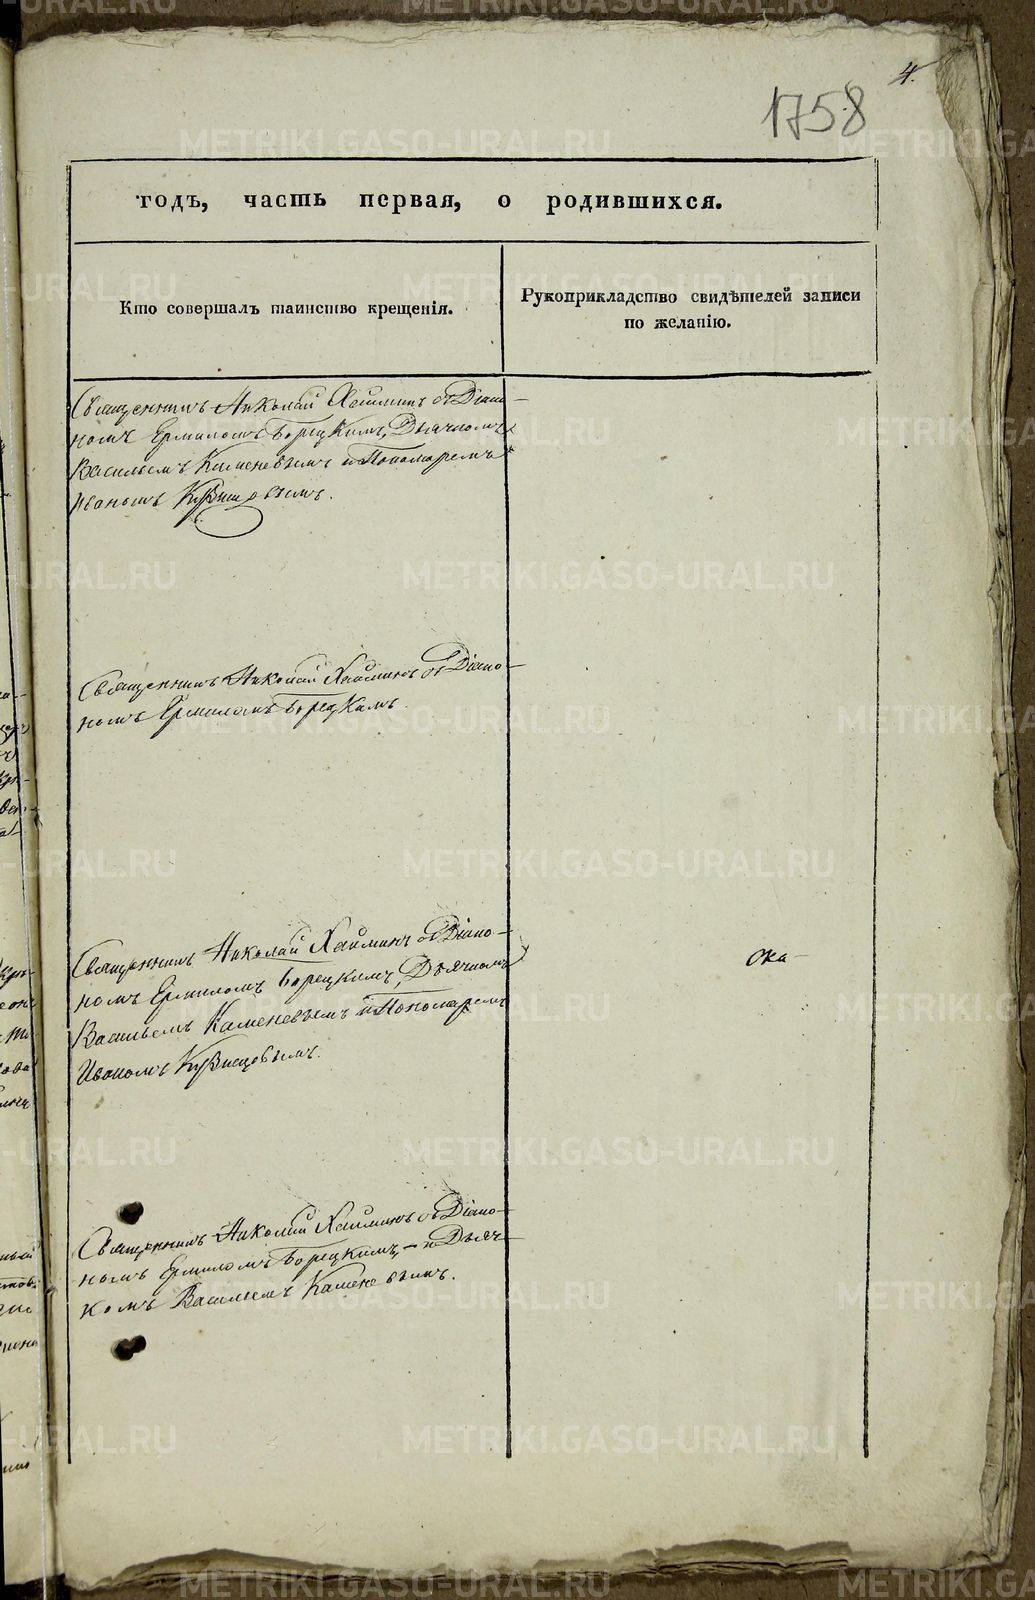 4.
1758
годъ, часть первая, о родившихся.
Кто совершалъ таинство крещенія.
Рукоприкладство свидѣтелей записи
по желанію.
Священникъ Николай Хайминъ съ Діако-
номъ Ермиломъ Борецкимъ, Дьячкомъ
Васильемъ Каменевымъ и Пономаремъ
Иваномъ Кузнецовымъ.
Священникъ Николай Хайминъ съ Діако-
номъ Ермиломъ Борецкимъ
Священникъ Николай Хайминъ съ Діако-
номъ Ермиломъ Борецкимъ, Дьячкомъ
Васильемъ Каменевымъ и Пономаремъ
Иваномъ Кузнецовымъ.
Священникъ Николай Хайминъ съ Діако-
номъ Ермиломъ Борецкимъ, и Дьяч-
комъ Васильемъ Каменевымъ.
METRIKI.GASO-URAL.RU